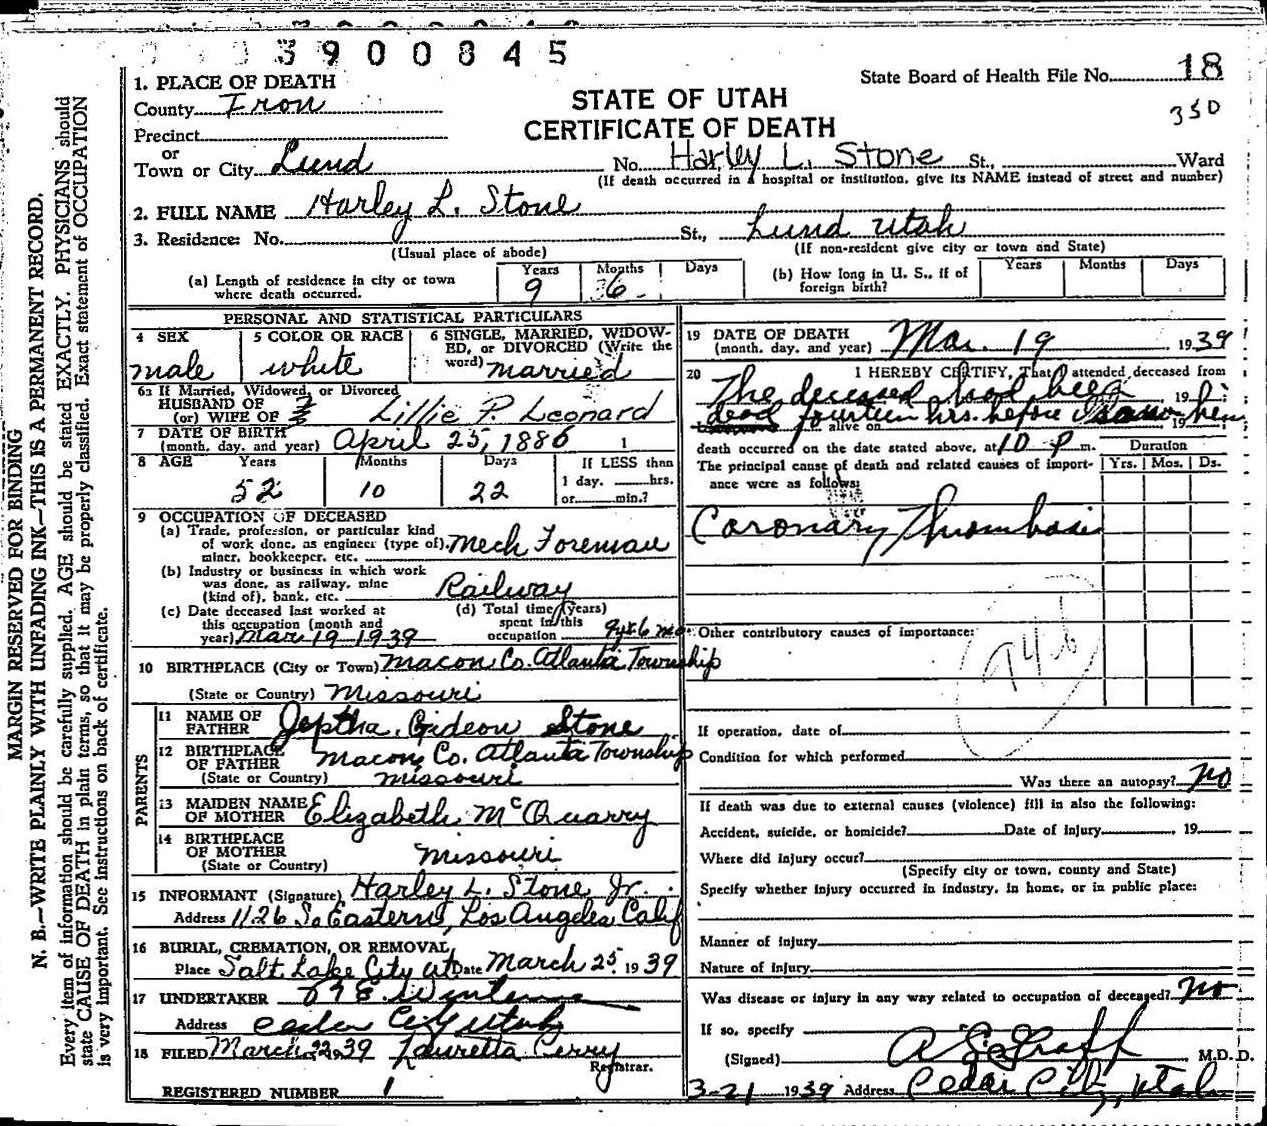 3900845
State Board of Health File No. 18
350
STATE OF UTAH
CERTIFICATE OF DEATH
1. PLACE OF DEATH
County Iron
Precinct
or
Town or City Lund No. Harley L. Stone St., Ward
(If death occurred in a hospital or institution, give its NAME instead of street and number)
2. FULL NAME Harley L. Stone
3. Residence: No. St., Lund Utah
(Usual place of abode) (If non-resident give city or town and State)
(a) Length of residence in city or town where death occurred. Years 9 Months 6 Days
(b) How long in U. S., if of foreign birth? Years Months Days
PERSONAL AND STATISTICAL PARTICULARS
4 SEX male
5 COLOR OR RACE white
6 SINGLE, MARRIED, WIDOWED, or DIVORCED (Write the word) married
6a If Married, Widowed, or Divorced
HUSBAND OF
(or) WIFE OF Lillie P. Leonard
7 DATE OF BIRTH
(month, day, and year) April 25, 1886
8 AGE Years 52 Months 10 Days 22 If LESS than 1 day, hrs. or min.?
9 OCCUPATION OF DECEASED
(a) Trade, profession, or particular kind
of work done, as engineer (type of), Mech Foreman
miner, bookkeeper, etc.
(b) Industry or business in which work
was done, as railway, mine
(kind of), bank, etc. Railway
(c) Date deceased last worked at
this occupation (month and
year) Mar 19 1939
(d) Total time (years)
spent in this
occupation 9 yr 6 mo.
10 BIRTHPLACE (City or Town) Macon Co. Atlanta Township
(State or Country) Missouri
PARENTS
11 NAME OF FATHER Jeptha Gideon Stone
12 BIRTHPLACE OF FATHER Macon Co. Atlanta Township
(State or Country) Missouri
13 MAIDEN NAME OF MOTHER Elizabeth McQuarry
14 BIRTHPLACE OF MOTHER
(State or Country) Missouri
15 INFORMANT (Signature) Harley L. Stone Jr.
Address 1126 So Eastern, Los Angeles Calif
16 BURIAL, CREMATION, OR REMOVAL,
Place Salt Lake City Ut Date March 25 1939
17 UNDERTAKER
Address Cedar City Utah
18 FILED March 22, 39 Lauretta Perry
Registrar.
REGISTERED NUMBER 1
19 DATE OF DEATH
(month, day, and year) Mar. 19, 1939
20 I HEREBY CERTIFY, That I attended deceased from
The deceased had been 19
dead fourteen hrs. before I saw him
alive on 19
death occurred on the date stated above, at 10 P m.
The principal cause of death and related causes of importance were as follows:
Duration
Yrs. Mos. Ds.
Coronary Thrombosis
Other contributory causes of importance:
94b
If operation, date of
Condition for which performed
Was there an autopsy? No
If death was due to external causes (violence) fill in also the following:
Accident, suicide, or homicide? Date of injury , 19
Where did injury occur?
(Specify city or town, county and State)
Specify whether injury occurred in industry, in home, or in public place:
Manner of injury
Nature of injury
Was disease or injury in any way related to occupation of deceased? No
If so, specify
(Signed) M.D.D.
3-21 1939 Address Cedar City, Utah
MARGIN RESERVED FOR BINDING
N. B.—WRITE PLAINLY WITH UNFADING INK—THIS IS A PERMANENT RECORD.
Every item of information should be carefully supplied. AGE should be stated EXACTLY. PHYSICIANS should
state CAUSE OF DEATH in plain terms, so that it may be properly classified. Exact statement of OCCUPATION
is very important. See instructions on back of certificate.